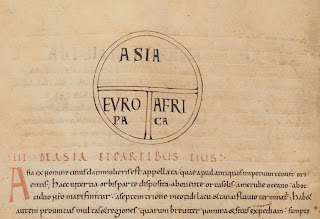 ASIA
EVRO AFRI
PA CA
III DE ASIA ET PARTIBUS EIUS:
Asia ex nomine cuiusdam mulieris est appellata quae apud antiquos imperium tenuit ori
entis. haec in tertia orbis parte disposita ab oriente ortu solis. a meridie oceano. ab
occiduo nostro mari finitur. a septemtrione meotidi lacu et tanai fluvio terminatur. habet
autem provincias multas et regiones quarum breviter nomina et situs expediam. sumpto